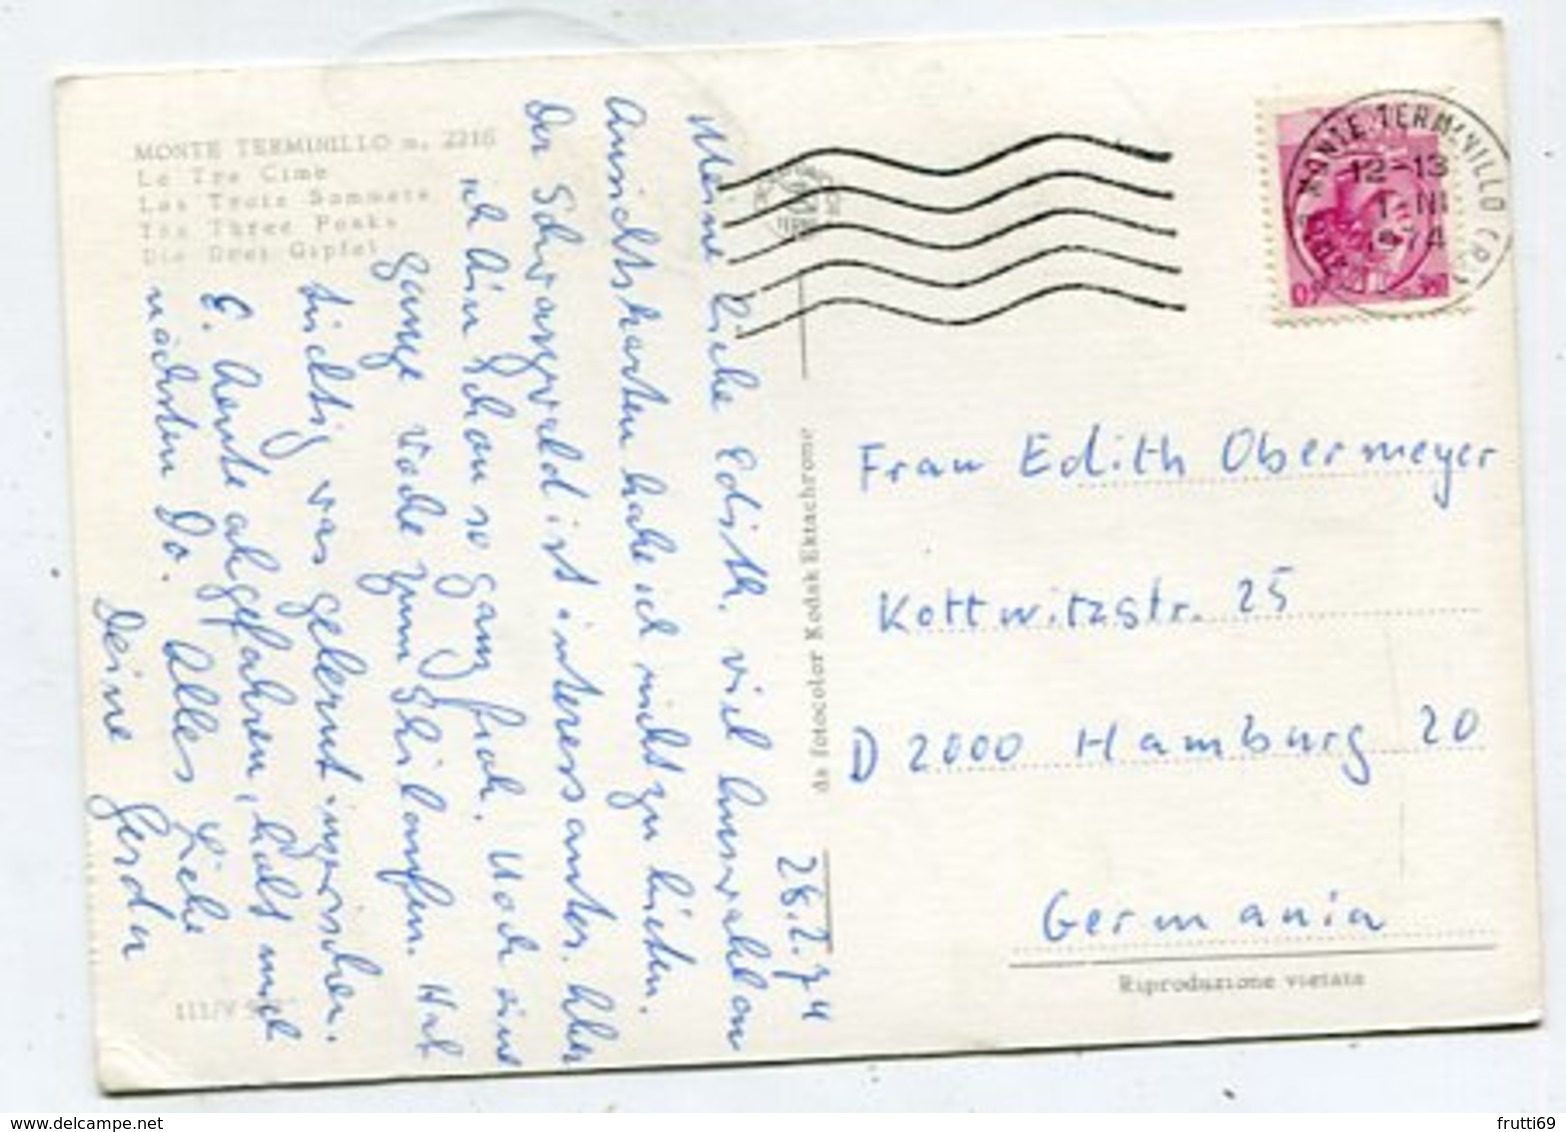 MONTE TERMINILLO m. 2216
Le Tre Cime
Les Trois Sommets
The Three Peaks
Die Drei Gipfel
28.2.74
Meine liebe Edith, viel Auswahl an
Ansichtskarten habe ich nicht zu bieten.
Der Schwarzwald ist interessanter. Aber
ich bin schon so ganz froh. Noch eine
ganze Woche zum Skilaufen. Hat
tüchtig was gelernt inzwischen.
E. heute abgefahren, holt mich
nächsten Do. Alles Liebe
Deine Gerda
da fotocolor Kodak Ektachrome
MONTE TERMINILLO
12-13
1-III
1974
Frau Edith Obermeyer
Kottwitzstr. 25
D 2000 Hamburg 20
Germania
Riproduzione vietata
frutti69